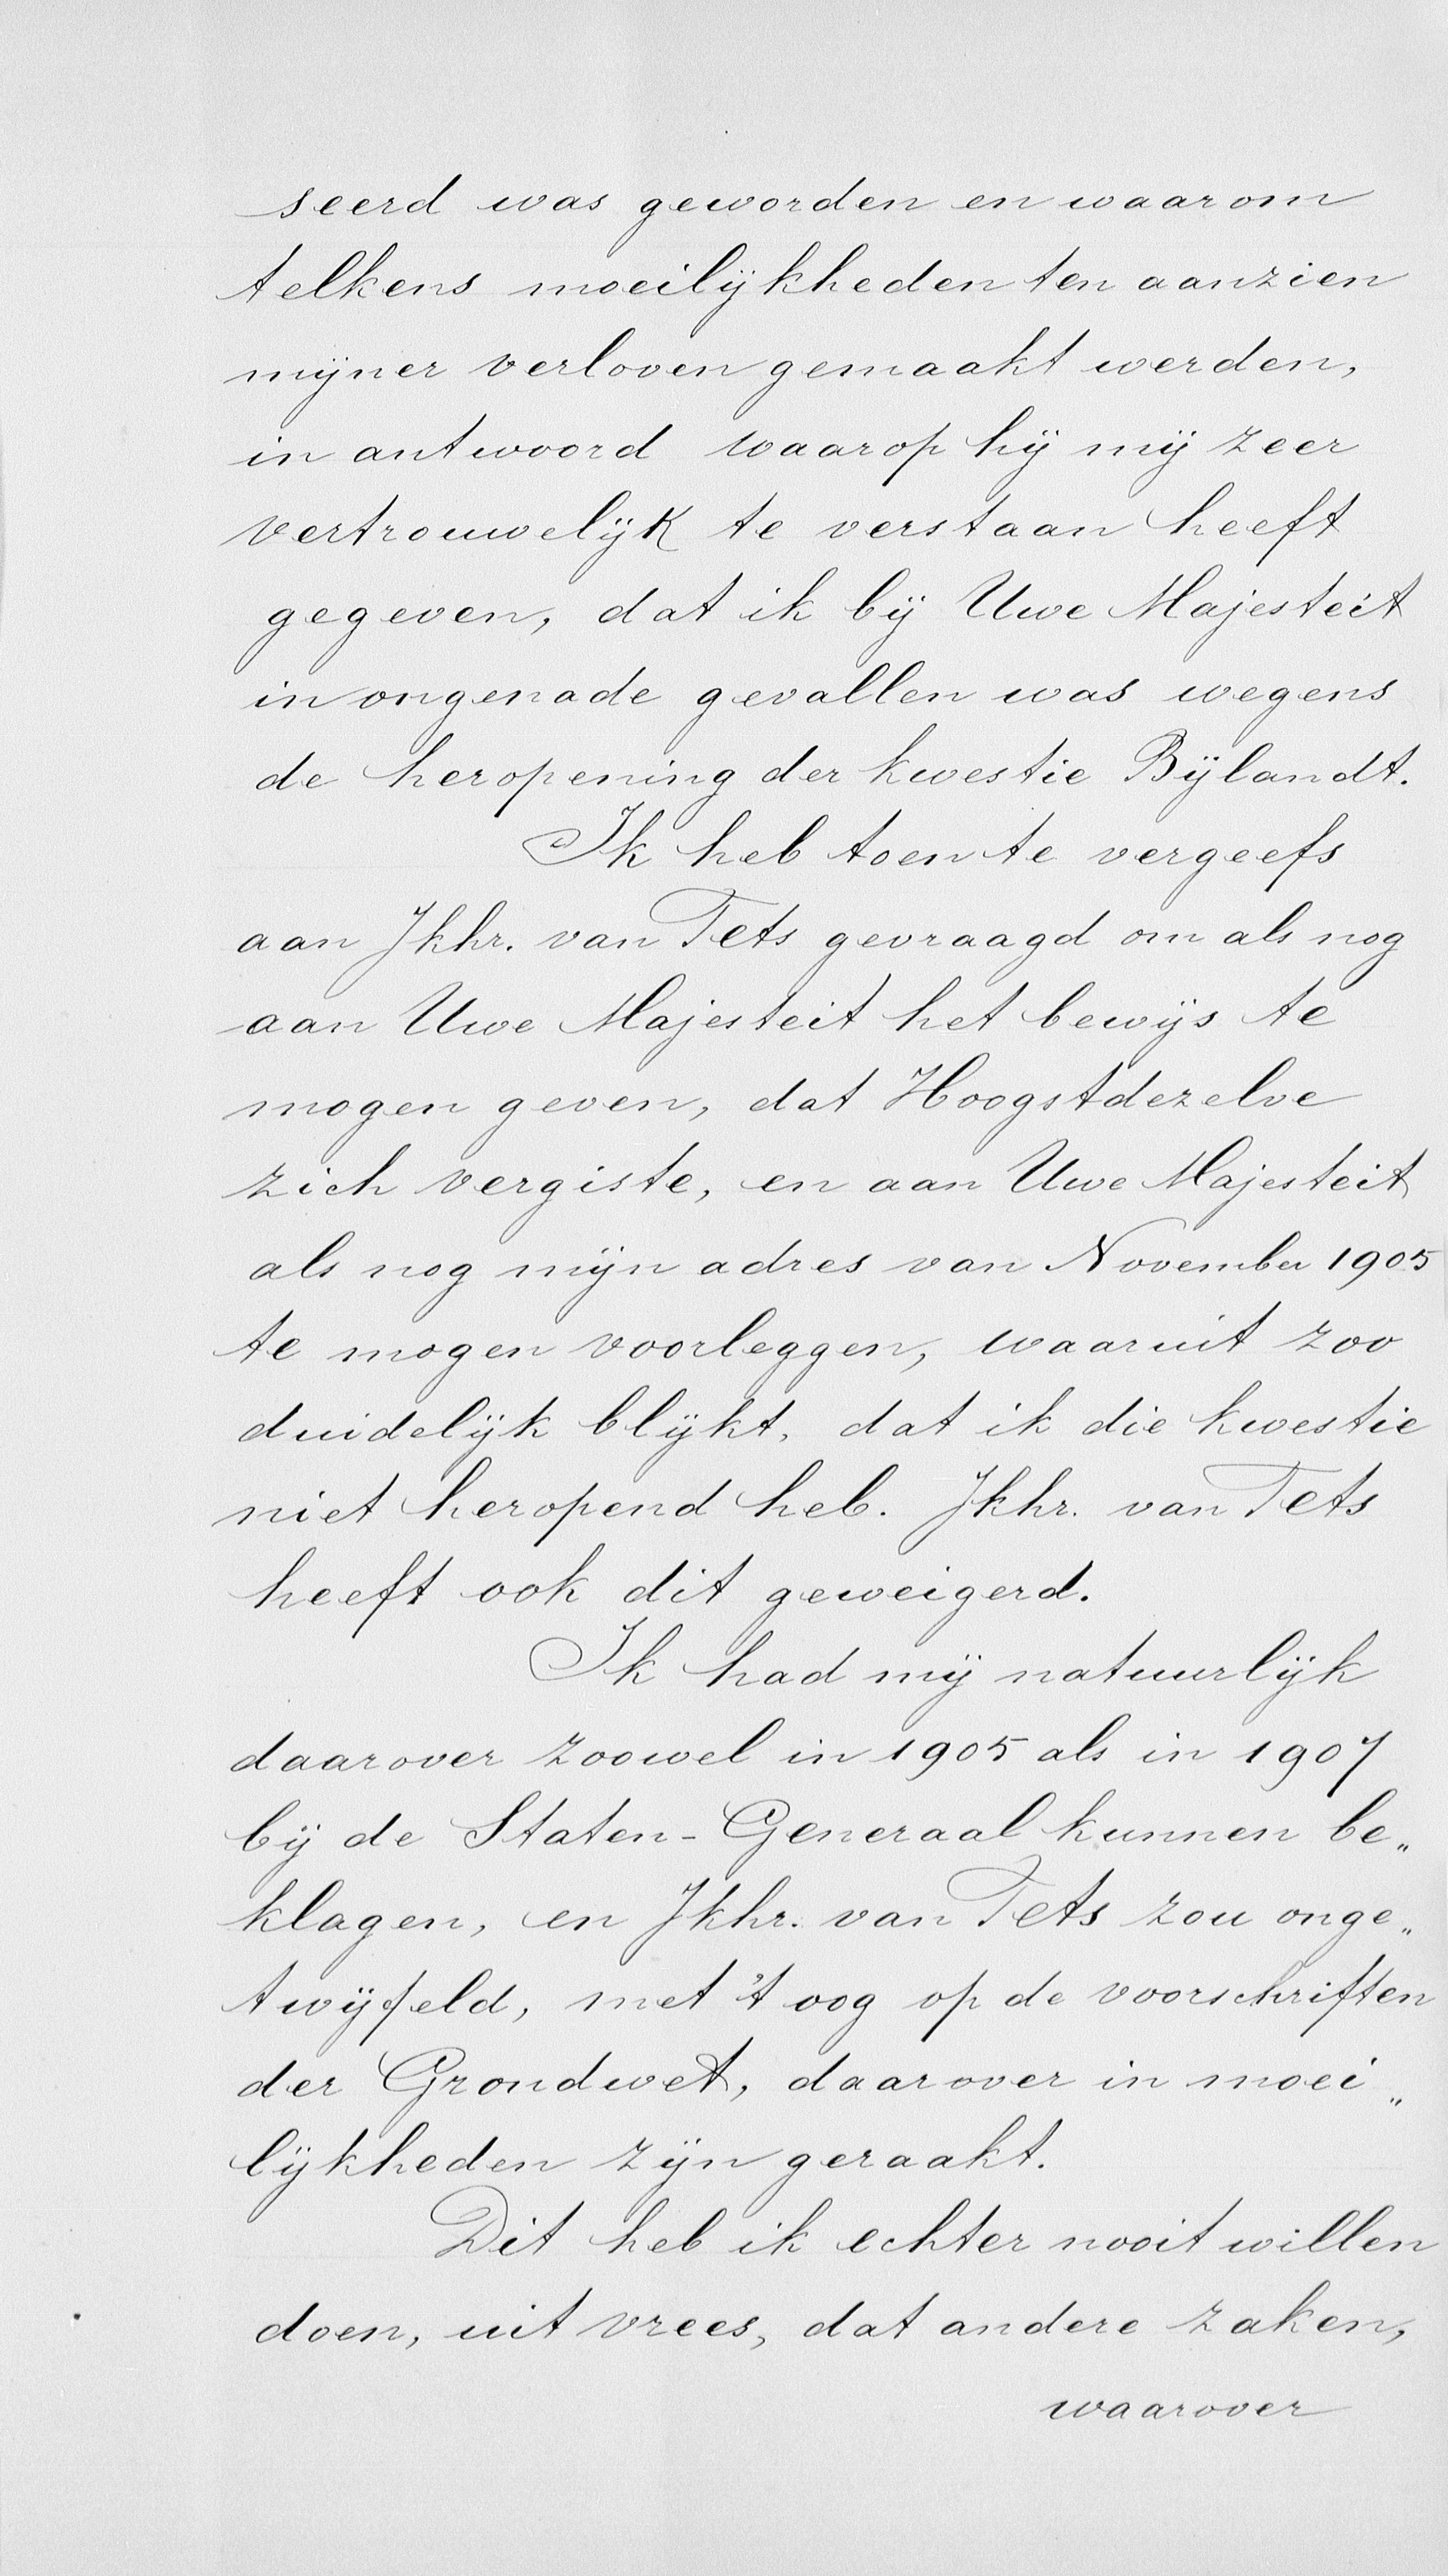 seerd was geworden en waarom
telkens moeilijkheden ten aanzien
mijner verloven gemaakt werden,
in antwoord waarop hij mij zeer
vertrouwelijk te verstaan heeft
gegeven, dat ik bij Uwe Majesteit
in ongenade gevallen was wegens
de heropening der kwestie Bijlandt.
Ik heb toen te vergeefs
aan Jkhr. van Tets gevraagd om als nog
aan Uwe Majesteit het bewijs te
mogen geven, dat Hoogstdezelve
zich vergiste, en aan Uwe Majesteit
als nog mijn adres van November 1905
te mogen voorleggen, waaruit zoo
duidelijk blijkt, dat ik die kwestie
niet heropend heb. Jkhr. van Tets
heeft ook dit geweigerd.
Ik had mij natuurlijk
daarover zoowel in 1905 als in 1907
bij de Staten-Generaal kunnen be„
klagen, en Jkhr. van Tets zou onge„
twijfeld, met 't oog op de voorschriften
der Grondwet, daarover in moei„
lijkheden zijn geraakt.
Dit heb ik echter nooit willen
doen, uit vrees, dat andere zaken,
waarover